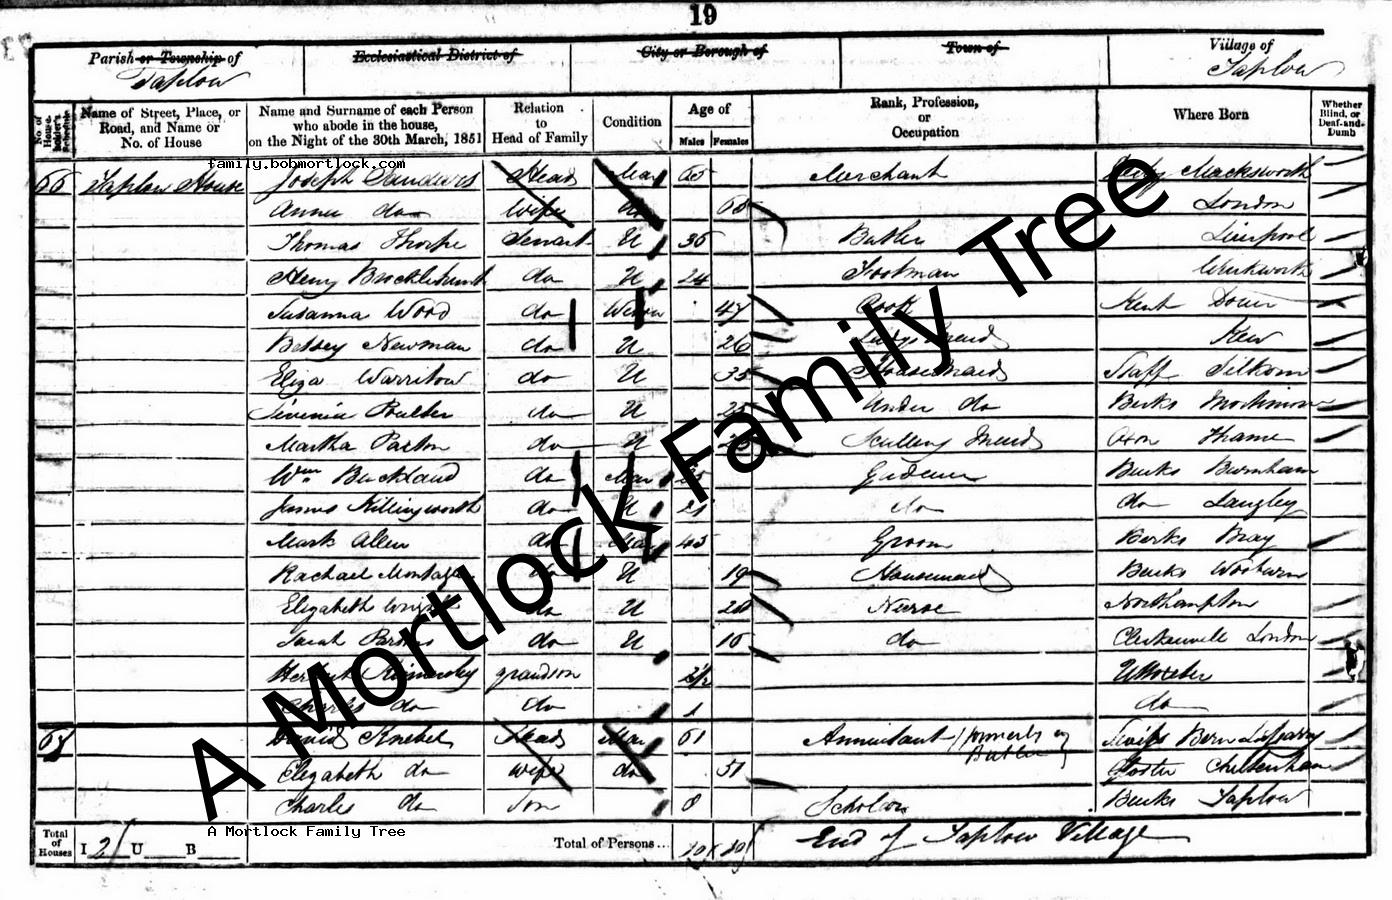 19
Parish or Township of Ecclesiastical District of City or Borough of Town of Village of
Taplow Taplow
No. of House-holder's Schedule Name of Street, Place, or Road, and Name or No. of House Name and Surname of each Person who abode in the house, on the Night of the 30th March, 1851 Relation to Head of Family Condition Age of Males Females Rank, Profession, or Occupation Where Born Whether Blind, or Deaf-and-Dumb
family.bobmortlock.com
66 Taplow House Joseph Sanders Head Mar 65 Merchant Macksworth
Annie do Wife 65 London
Thomas Thorpe Servant U 36 Butler Liverpool
Henry Brocklehurst do U 24 Footman Wirksworth
Susanna Wood do Widow 47 Cook Kent Dover
Betsey Newman do U 26 Ladys Maid Kew
Eliza do U 35 Housemaid Staff
Poulter do U 25 Under do Berks Mortimer
Martha Paxton do U Maid Oxon Thame
Wm Buckland do Mar Bucks Burnham
James Killingworth do U 21 do do Langley
Mark Allen do Mar 43 Groom Berks Bray
Rachael do U 19 Housemaid Bucks
Elizabeth do U 20 Nurse Northampton
Sarah do U 16 do Clerkenwell London
Herbert grandson 2½ Uttoxeter
Charles do do 1 do
67 David Knebel Head Mar 61 Annuitant / formerly a Butler
Elizabeth do Wife do 51 Gloster Cheltenham
Charles do Son 8 Scholar Bucks Taplow
A Mortlock Family Tree
Total of Houses I 2 U B Total of Persons... 10 10 End of Taplow Village
A Mortlock Family Tree